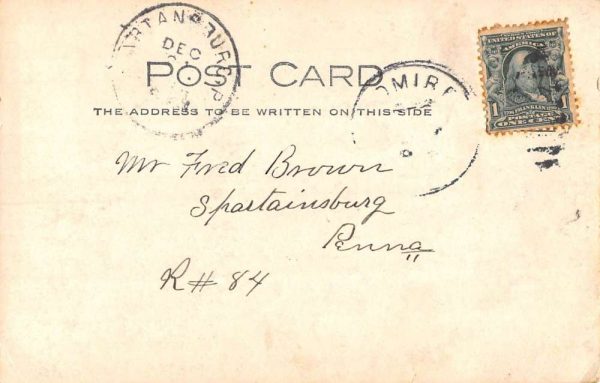 ARTANSBURG, P
DEC
POST CARD
OMIRE
THE ADDRESS TO BE WRITTEN ON THIS SIDE
UNITED STATES OF
AMERICA
FRANKLIN
1 1
POSTAGE
ONE CENT
Mr Fred Brown
Spartainsburg
Penna
R # 84